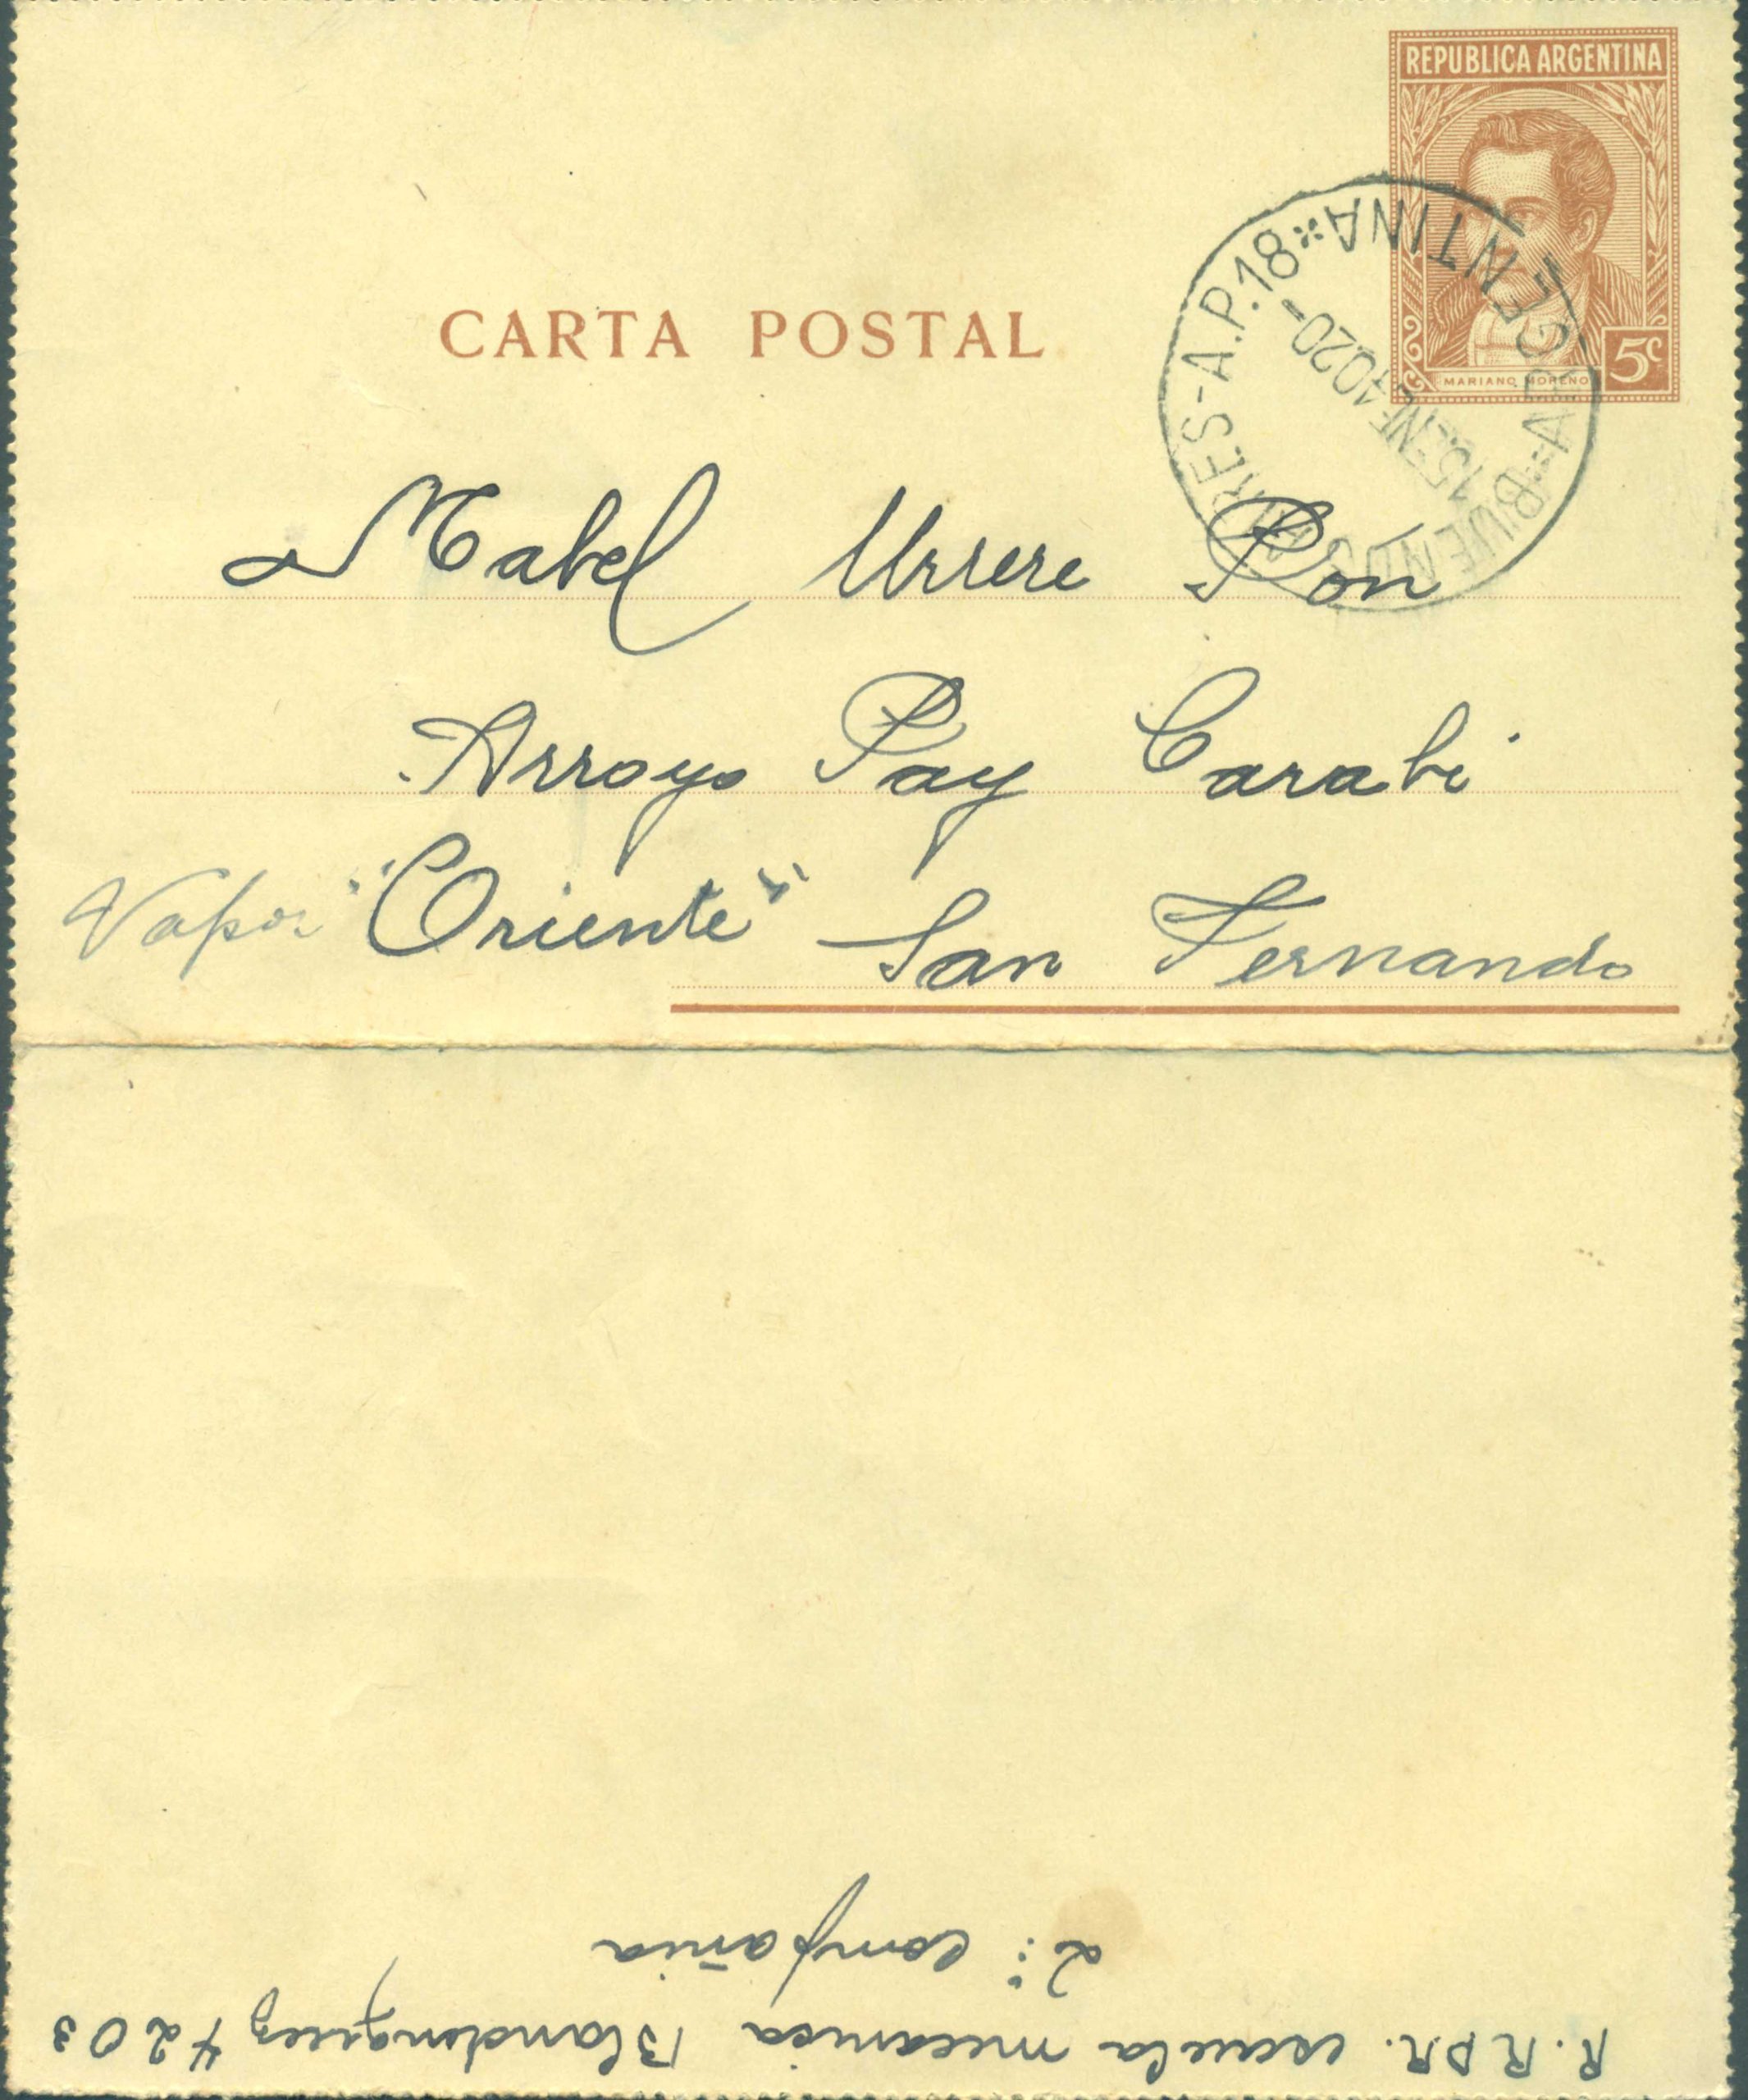 REPUBLICA ARGENTINA
MARIANO MORENO
5c
CARTA POSTAL
BUENOS AIRES-A.P.18 ARGENTINA
15.ENE.40 20-
Mabel Urrere Pón
Arroyo Pay Carabi
Vapor "Oriente" San Fernando
R. escuela mecanica Blandengues 4203
2ª: compañia